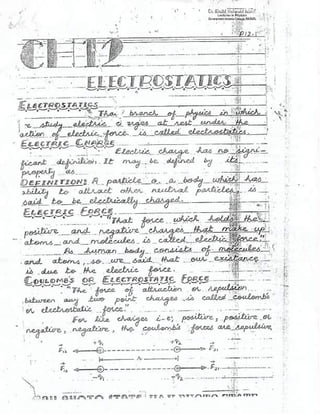 P12-1
CH 12
ELECTROSTATICS
ELECTROSTATICS
"That branch of physics in which
we study electric charges at rest under the
action of electric force is called electrostatics.
ELECTRIC CHARGE
Electric charge has no signi-
ficant definition. It may be defined by its
property as
DEFINITION: A particle or a body which has
ability to attract other neutral particles, is
said to be electrically charged.
ELECTRIC FORCE
"That force which holds the
positive and negative charges that make up
atoms and molecules is called electric force."
As human body consists of molecules
and atoms, so we said that our existance
is due to the electric force.
COULOMB'S OR ELECTROSTATIC FORCE
"The force of attraction or repulsion
between any two point charges is called coulomb's
or electrostatic force."
For like charges i-e; positive, positive or
negative, negative, the coulomb's forces are repulsive